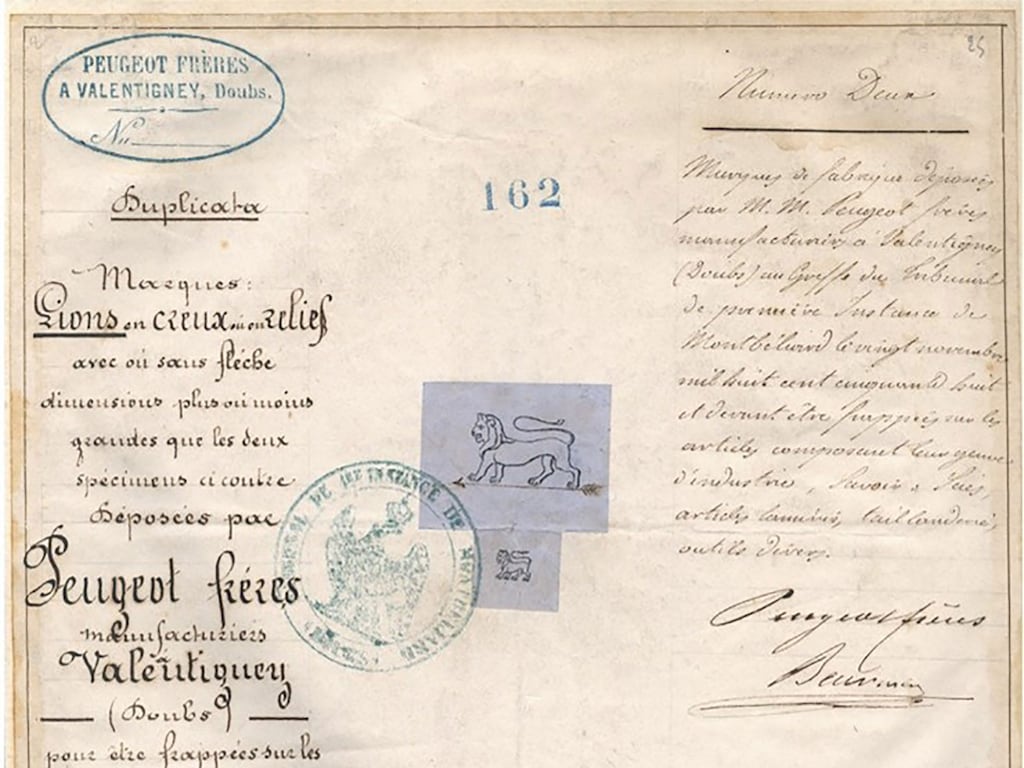 PEUGEOT FRÈRES
A VALENTIGNEY, Doubs.
No
25
Numéro Deux
162
Duplicata
Marques:
Lions en creux ou en relief
avec où sans flèche
dimensions plus ou moins
grandes que les deux
spécimens ci contre
Déposées par
Peugeot frères
manufacturiers
Valentigney
(Doubs)
pour être frappées sur les
TRIBUNAL DE 1RE INSTANCE DE MONTBÉLIARD
Marques de fabrique déposées
par M. M. Peugeot frères
manufacturiers à Valentigney
(Doubs) au Greffe du Tribunal
de première Instance de
Montbéliard le vingt novembre
mil huit cent cinquante huit
et devant être frappées sur les
articles composant leur genre
d'industrie, Savoir, Scies,
articles laminés, taillanderie,
outils divers.
Peugeot frères